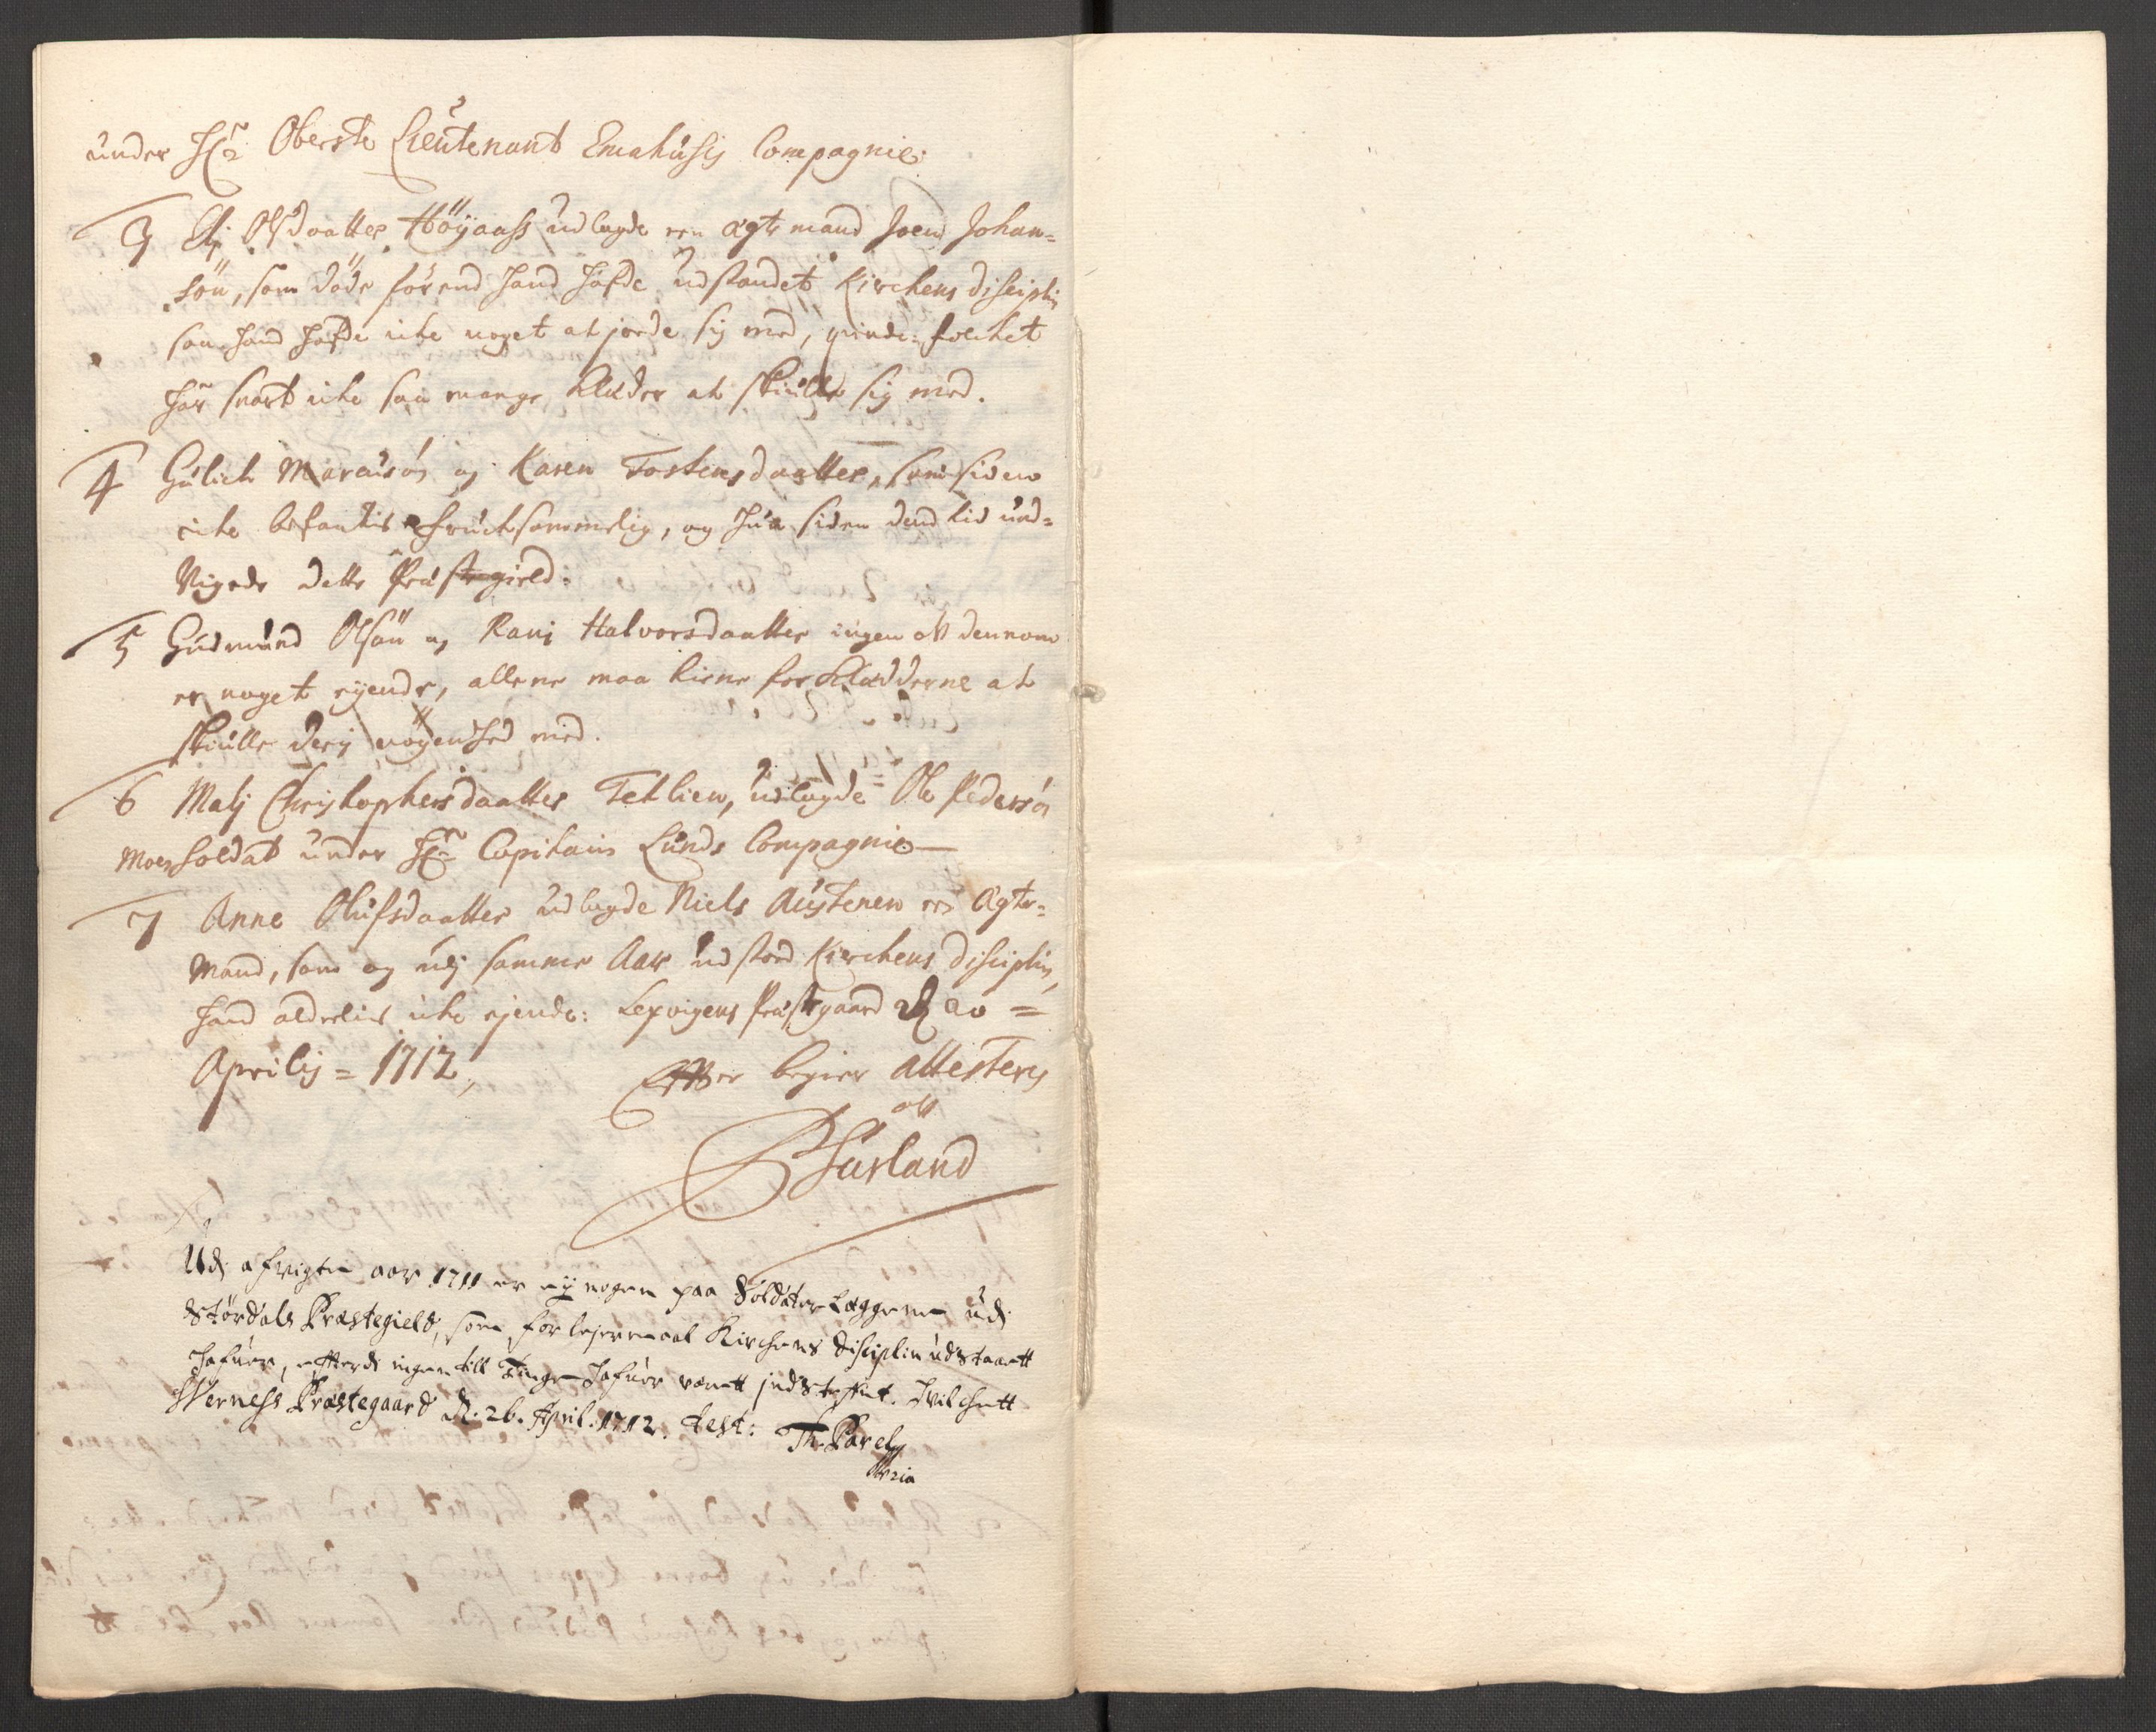 under Hr Oberste Lieutenant Emahusis Compagnie.
3 Elj Olsdaatter Höyaass udlagde een ægte mand Joen Johan=
sön, som döde förend hand hafde udstandet Kirchens disciplin
saa hand hafde iche noget at jorde sig med, qvinde: folchet
har snart iche saa mange Klæder at skiulle sig med.
4 Gulich og Karen Tostensdaatter, som siden
iche befantis fruchsommelig, og hun siden dend tid und=
vigede dette Præstegield:
5 Gudmund Olsön og Ranj Halvorsdaatter ingen aff dennom
er noget eyende, allene maa tiene for Kladderne at
skiulle deris nöyenhed med.
6 Malj Christophersdaatter Tetlien, udlagde Ole Pedersön
Moen soldat under Hr Capitain Lunds Compagnie
7 Anne Olufsdaatter udlagde Niels Austenen een Ægte=
Mand, som og udj samme Aar udstod Kirchens disciplin,
hand aldrelis iche ejende: Lexvigens Præstgaard d 20 =
Aprilis = 1712,
Effter begier attesteris
aff
Surland
Udj afvigte aar 1711 er ey nogen paa Soldater Læggerne udj
Stördals Præstegield, som for lejermaal Kirchens disciplin udstaaett
hafuer, efterdj ingen till Tinge hafuer værett jndsteffnt. Hvilchett
Werness Præstegaard d: 26. April. 1712. test: Th: Parelj